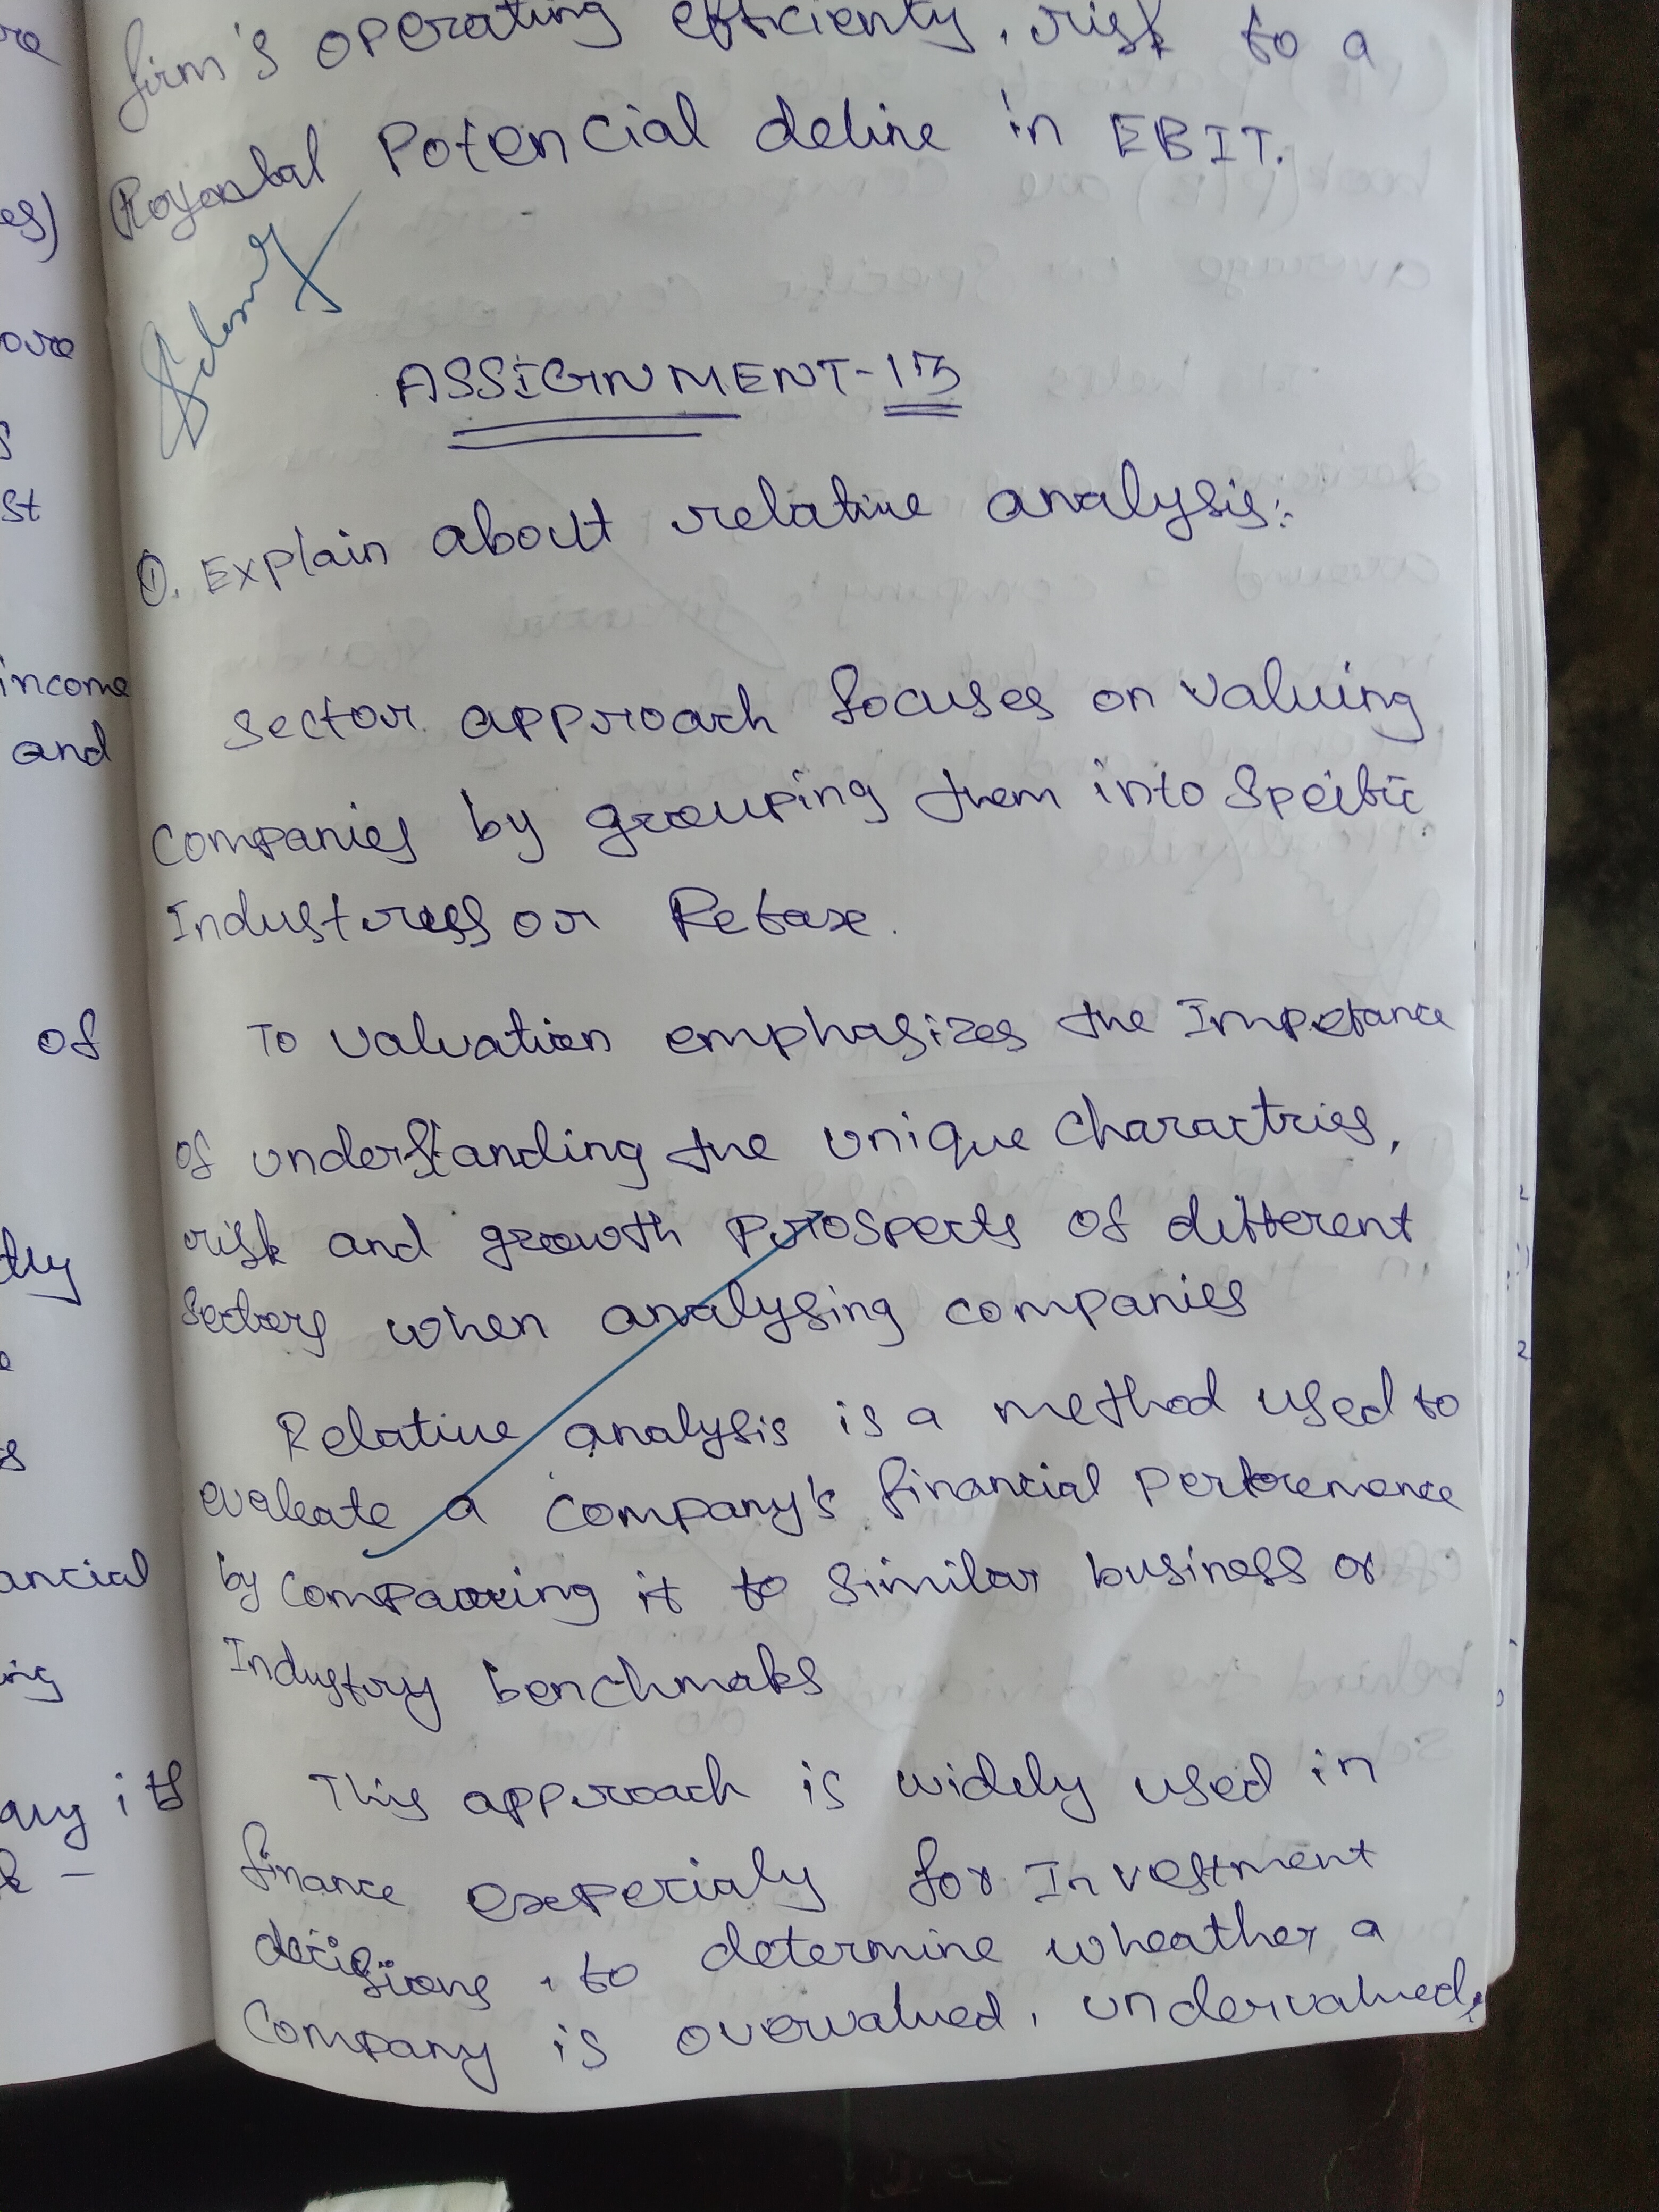 firm's operating efficienty, risk to a
Potencial deline in EBIT.
ASSIGNMENT-13
①. Explain about relative analysis:
Sector approach focuses on valuing
Companies by grouping them into Speific
Industress or
To valuation emphasizes the Impotance
of understanding the unique charactries,
risk and growth Prospects of different
Sectors when analysing companies
Relative analysis is a method used to
evaleate a Company's financial Performence
by Comparing it to Similar business or
Industry benchmaks
This approach is widely used in
finance especialy for Investment
decisions, to determine wheather a
Company is overvalued, undervalued,
re
es)
ore
s
st
income
and
of
tly
s
ancial
ing
any its
k -